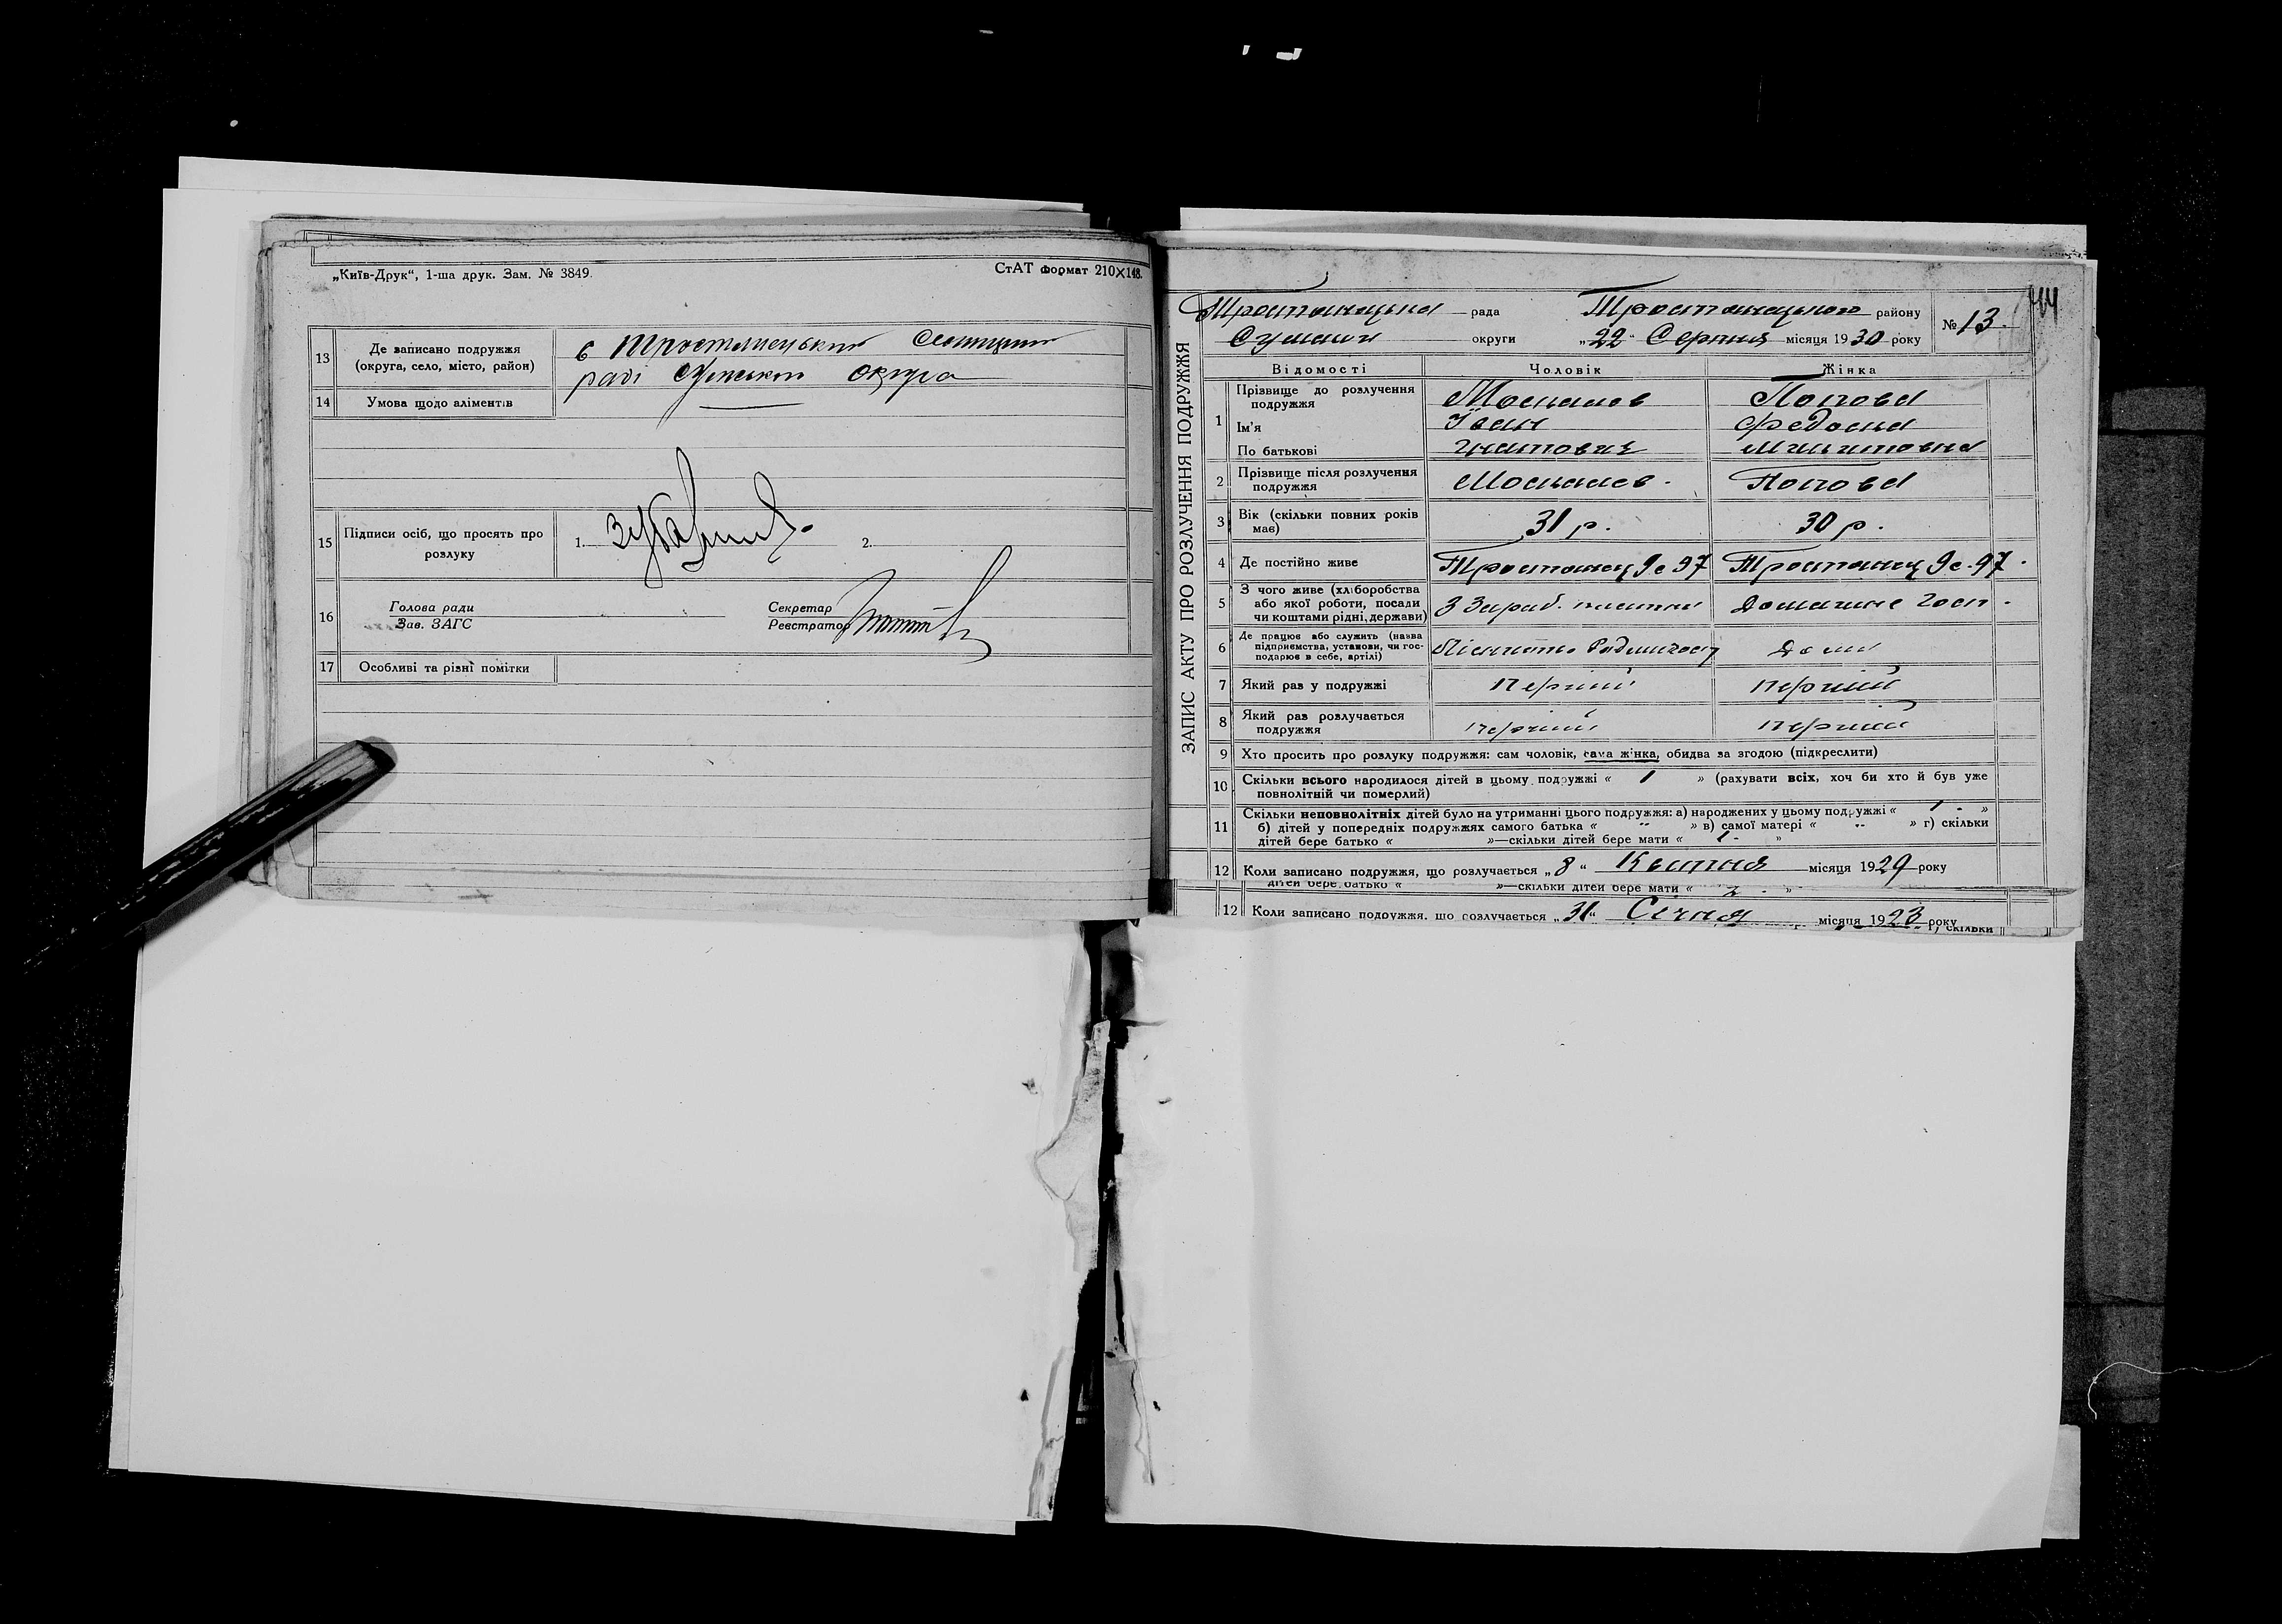 „Київ-Друк“, 1-ша друк. Зам. № 3849.
СтАТ формат 210×148.
13
Де записано подружжя
(округа, село, місто, район)
в Тростянецький Селищній
раді Сумської округа
14
Умова щодо аліментів
15
Підписи осіб, що просять про
розлуку
1.
2.
16
Голова ради
Зав. ЗАГС
Секретар
Реєстратор
17
Особливі та різні помітки
44
ЗАПИС АКТУ ПРО РОЗЛУЧЕННЯ ПОДРУЖЖЯ
Тростянецька рада Тростянецького району
№ 13.
Сумської округи „22“ Серпня місяця 1930 року
Відомості Чоловік Жінка
1
Прізвище до розлучення
подружжя
Москалев Попова
Ім'я Іван Федосья
По батькові Гнатович Микитовна
2
Прізвище після розлучення
подружжя
Москалев. Попова
3
Вік (скільки повних років
має)
31 р. 30 р.
4
Де постійно живе
Тростянец 9е 97 Тростянец 9е-97.
5
З чого живе (хліборобства
або якої роботи, посади
чи коштами рідні, держави)
З Зароб. платни Домашнє Госп.
6
Де працює або служить (назва
підприємства, установи, чи гос-
подарює в себе, артілі)
Дома
7
Який раз у подружжі
перший перший
8
Який раз розлучається
подружжя
перший перший
9
Хто просить про розлуку подружжя: сам чоловік, сама жінка, обидва за згодою (підкреслити)
10
Скільки всього народилося дітей в цьому подружжі « 1 » (рахувати всіх, хоч би хто й був уже
повнолітній чи померлий)
11
Скільки неповнолітніх дітей було на утриманні цього подружжя: а) народжених у цьому подружжі « 1 - »
б) дітей у попередніх подружжях самого батька « -- » в) самої матері « -- » г) скільки
дітей бере батько « »—скільки дітей бере мати « 1 - »
12
Коли записано подружжя, що розлучається „8“ Квітня місяця 1929 року
дітей бере батько « »—скільки дітей бере мати « 2 - »
12
Коли записано подружжя, що розлучається „31“ Січня місяця 1923 року
г) скільки